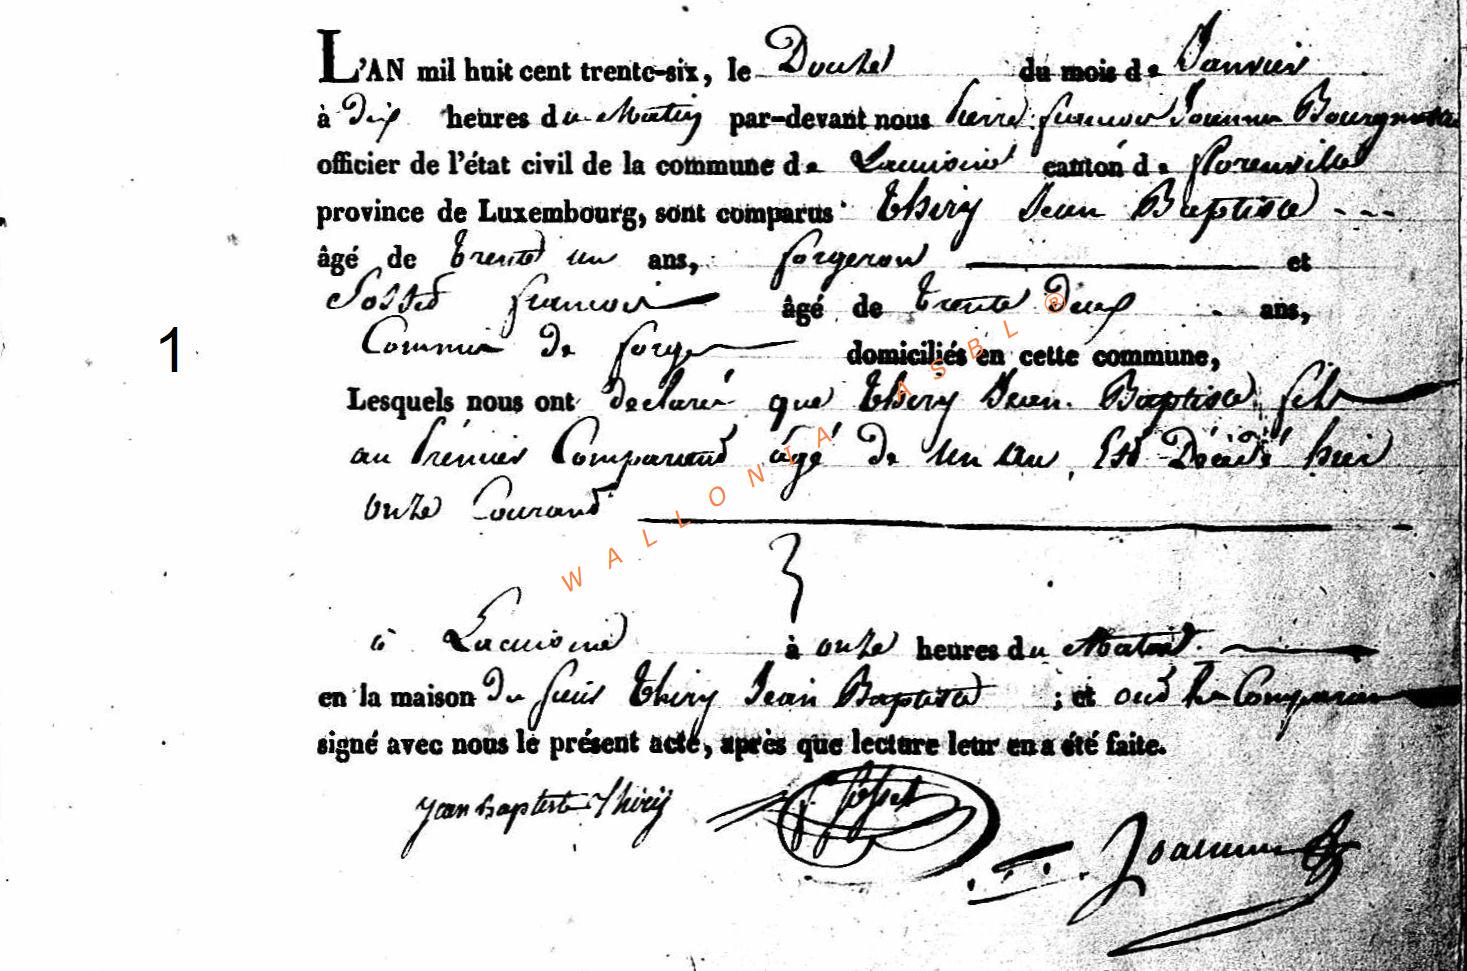 L'AN mil huit cent trente-six, le Douze du mois de Janvier
à Dix heures du Matin par-devant nous pierre françois Joannes Bourgmestre
officier de l'état civil de la commune de Lacuisine canton de florenville
province de Luxembourg, sont comparus Thiry Jean Baptiste ---
âgé de trente un ans, forgeron et
Josset françois âgé de trente Deux ans,
Commis de forge domiciliés en cette commune,
1
Lesquels nous ont declaré que Thiry Jean Baptiste fils
au prémier Comparant âgé de un an Est Décédé hier
onze Courant
à Lacuisine à onze heures du Matin
en la maison du sieur Thiry Jean Baptiste ; et ont les Comparans
signé avec nous le présent acte, après que lecture leur en a été faite.
Jean Baptiste Thiry f. Josset
Joannes
WALLONIA ASBL ®